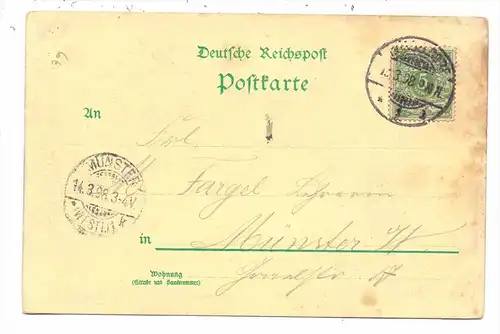 Deutsche Reichspost
Postkarte
An
Frl.
M. Fargel Lehrerin
MÜNSTER
14.3.98.3-4N.
*(WESTF.)1k
in Münster W.
Wohnung
(Straße und Hausnummer)